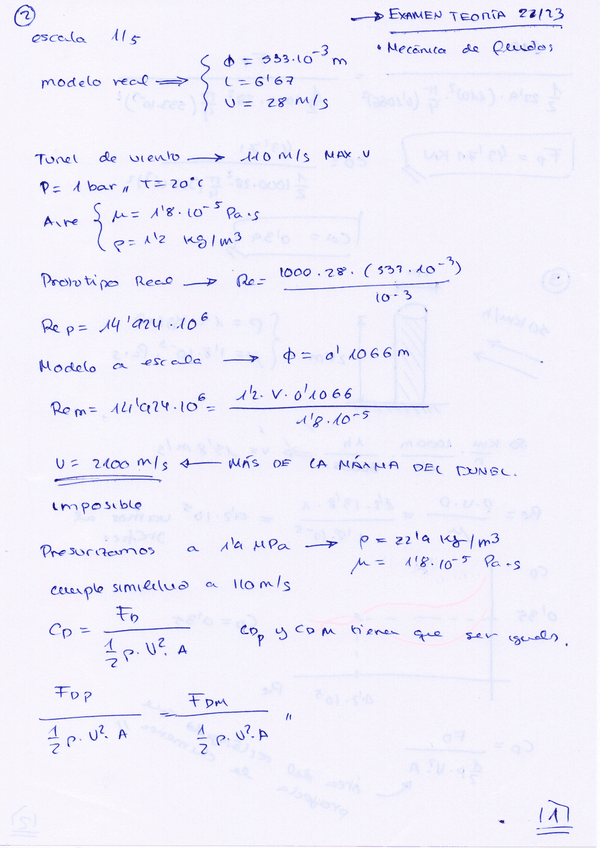 ②
→ EXAMEN TEORÍA 22/23
escala 1/5
• Mecánica de fluidos
modelo real ⇒ { ϕ = 533·10⁻³ m
L = 6'67
U = 28 m/s
Tunel de viento → 110 m/s MAX. U
P = 1 bar,, T = 20°C
Aire { μ = 1'8·10⁻⁵ Pa·s
ρ = 1'2 kg/m³
Prototipo Real → Re = 1000·28·(533·10⁻³) / 10-3
Re p = 14'924·10⁶
Modelo a escala → ϕ = 0'1066 m
Re m = 14'924·10⁶ = 1'2·V·0'1066 / 1'8·10⁻⁵
U = 2100 m/s ← MÁS DE LA MÁXIMA DEL TUNEL.
Imposible
Presurizamos a 1'9 MPa → ρ = 22'9 kg/m³
μ = 1'8·10⁻⁵ Pa·s
cumple similitud a 110 m/s
CD = FD / ½ ρ·U²·A CDp y CDM tienen que ser iguales.
FDP / ½ ρ·U²·A = FDM / ½ ρ·U²·A ,,
|1|